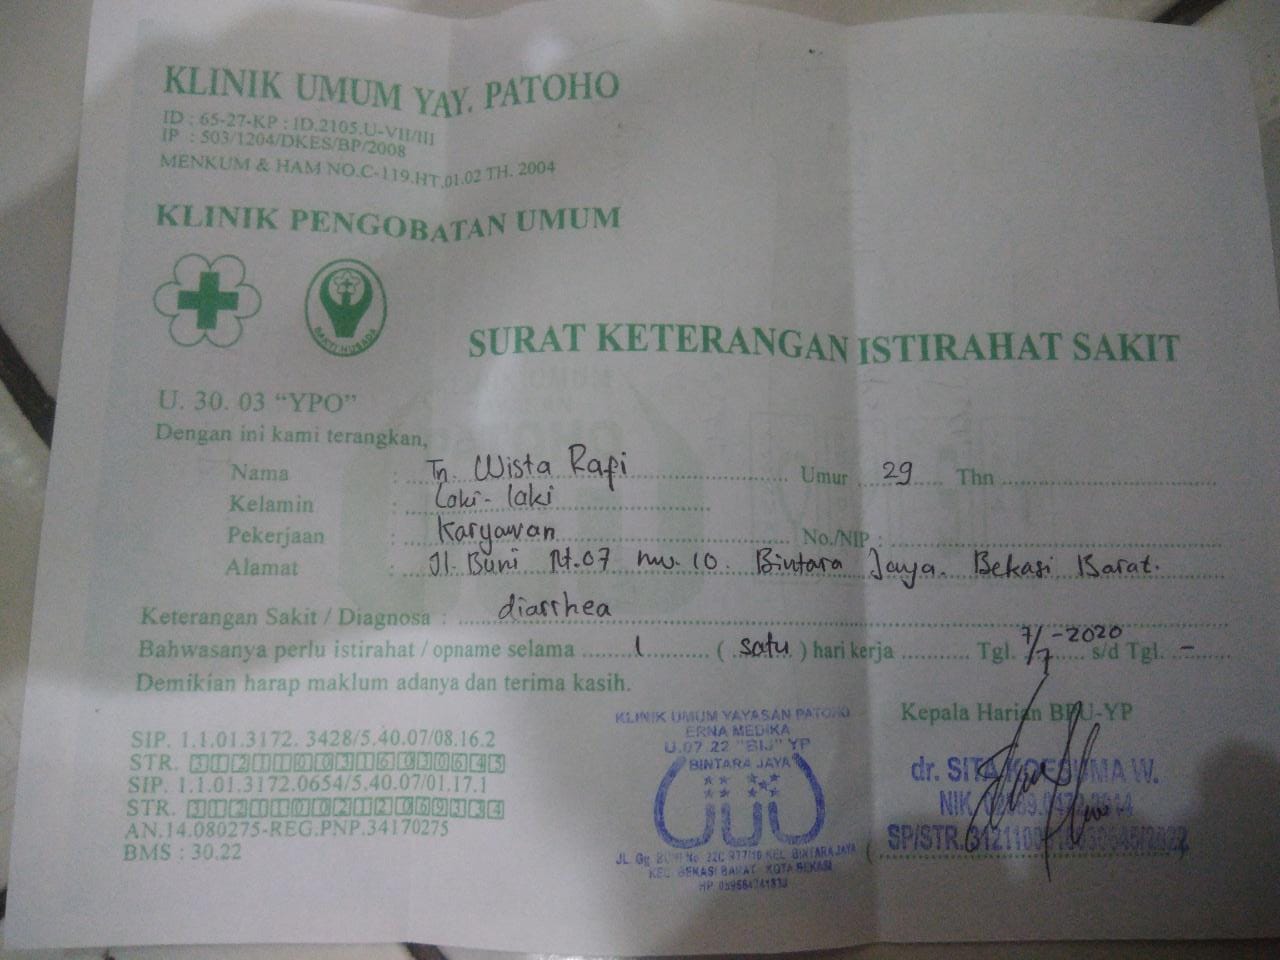 KLINIK UMUM YAY. PATOHO
ID : 65-27-KP : ID.2105.U-VII/III
IP : 503/1204/DKES/BP/2008
MENKUM & HAM NO.C-119.HT.01.02 TH. 2004
KLINIK PENGOBATAN UMUM
BAKTI HUSADA
SURAT KETERANGAN ISTIRAHAT SAKIT
U. 30. 03 “YPO”
Dengan ini kami terangkan,
Nama : Tn. Wista Rafi Umur 29 Thn
Kelamin : Laki-laki
Pekerjaan : Karyawan No./NIP :
Alamat : Jl. Buni Rt.07 rw. 10. Bintara Jaya. Bekasi Barat.
Keterangan Sakit / Diagnosa : diarrhea
Bahwasanya perlu istirahat / opname selama 1 ( satu ) hari kerja Tgl. 7/7-2020 s/d Tgl. -
Demikian harap maklum adanya dan terima kasih.
Kepala Harian BPU-YP
SIP. 1.1.01.3172. 3428/5.40.07/08.16.2
STR. 3121100316030645
SIP. 1.1.01.3172.0654/5.40.07/01.17.1
STR. 3121100212069334
AN.14.080275-REG.PNP.34170275
BMS : 30.22
KLINIK UMUM YAYASAN PATOHO
ERNA MEDIKA
U.07.22 "BIJ" YP
BINTARA JAYA
JL. Gg. BUNI No. 22C KEL. BINTARA JAYA
KEC. BEKASI BARAT KOTA BEKASI
HP.
dr. SITA KOESUMA W.
NIK.
SP/STR.